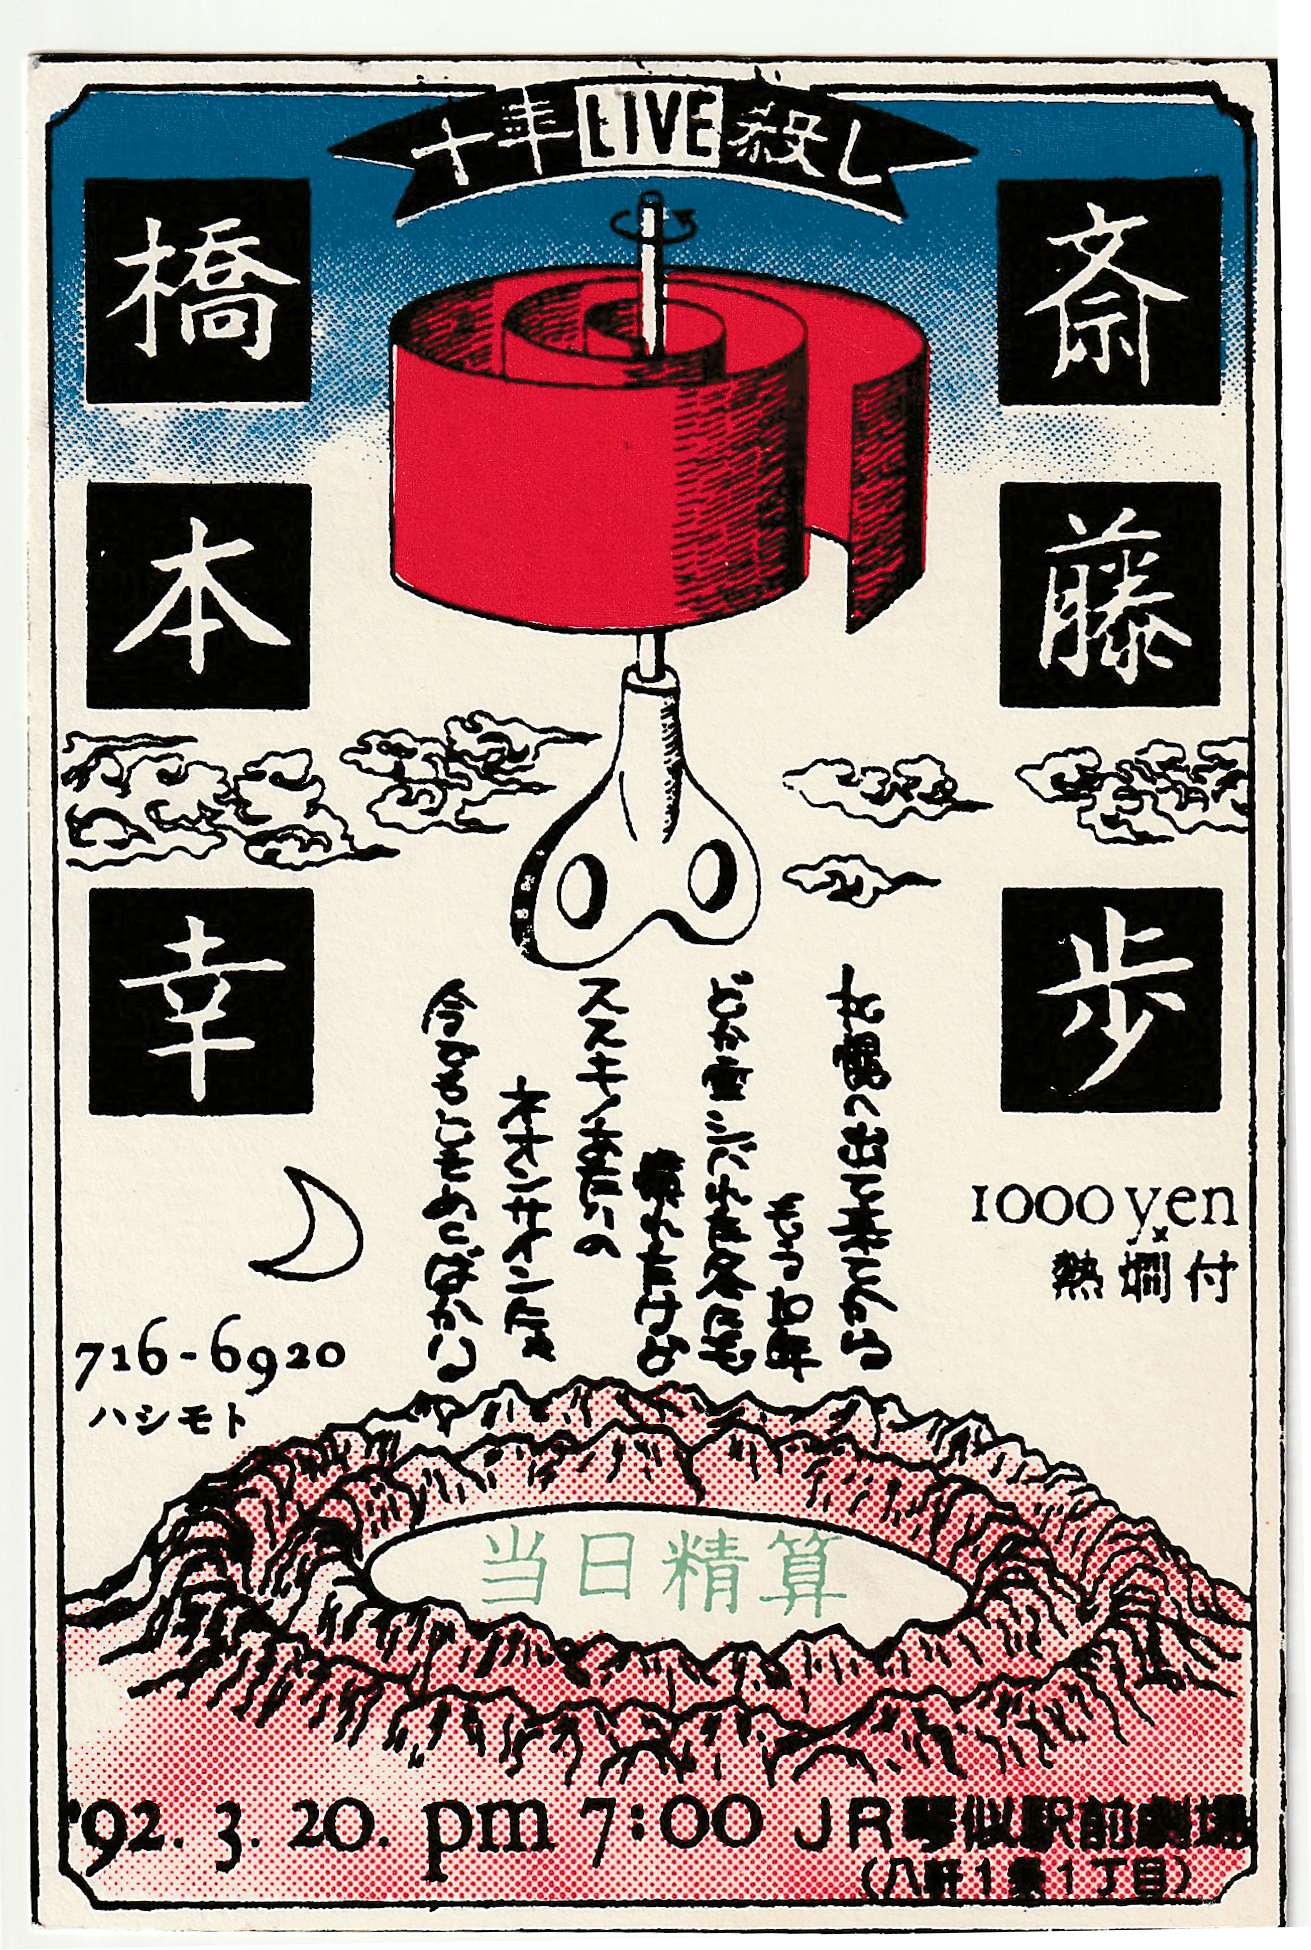 十年LIVE殺し
斎藤歩
橋本幸
札幌へ出て来てから
もう10年
どか雪シバれた冬にも
慣れたけど
ススキノあたりの
ネオンサインにゃ
今ときめくばかり
1000yen
熱燗付
716-6920
ハシモト
当日精算
'92. 3. 20. pm 7:00 JR琴似駅前劇場
(八軒1条1丁目)